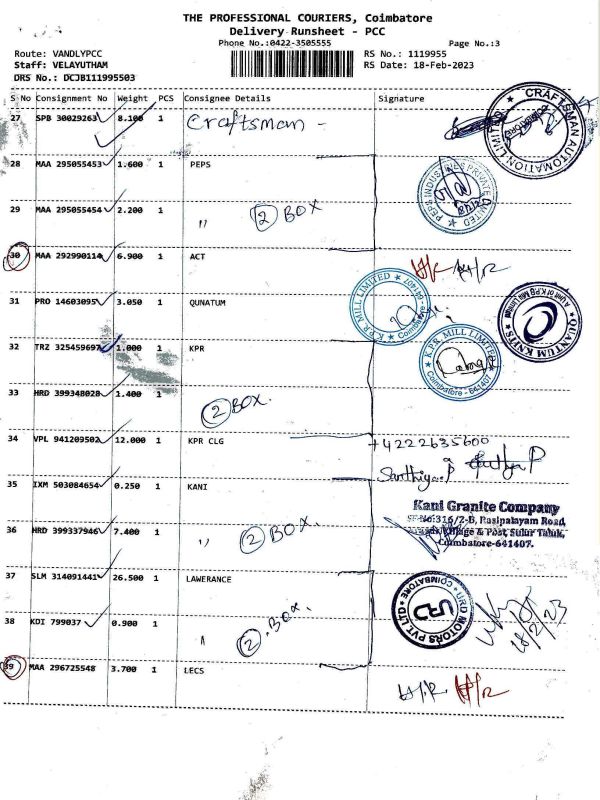 THE PROFESSIONAL COURIERS, Coimbatore
Delivery Runsheet - PCC
Phone No.:0422-3505555
Page No.:3
Route: VANDLYPCC
RS No.: 1119955
Staff: VELAYUTHAM
RS Date: 18-Feb-2023
DRS No.: DCJB111995503
S No Consignment No Weight PCS Consignee Details Signature
27 SPB 30029263 8.100 1 Craftsman -
CRAFTSMAN AUTOMATION LIMITED
28 MAA 295055453 1.600 1 PEPS
PEPS INDUSTRIES PRIVATE LIMITED
29 MAA 295055454 2.200 1 ,, 2 BOX
30 MAA 292990114 6.900 1 ACT
31 PRO 14603095 3.050 1 QUNATUM
K.P.R. MILL LIMITED Coimbatore - 641407
QUANTUM KNITS A Unit of KPR Mill Limited
32 TRZ 325459697 1.000 1 KPR
K.P.R. MILL LIMITED Coimbatore - 641407
33 HRD 399348028 1.400 1 2 BOX.
34 VPL 941209502 12.000 1 KPR CLG +4222635600
Santhiya.P
35 IXM 503084654 0.250 1 KANI
Kani Granite Company
SF No:316/2-B, Rasipalayam Road,
Village & Post, Sulur Taluk,
Coimbatore-641407.
36 HRD 399337946 7.400 1 ,, 2 BOX.
37 SLM 314091441 26.500 1 LAWERANCE
URD MOTORS PVT. LTD COIMBATORE
URD
18/2/23
38 KDI 799037 0.900 1 ,, 2 .BOX.
39 MAA 296725548 3.700 1 LECS